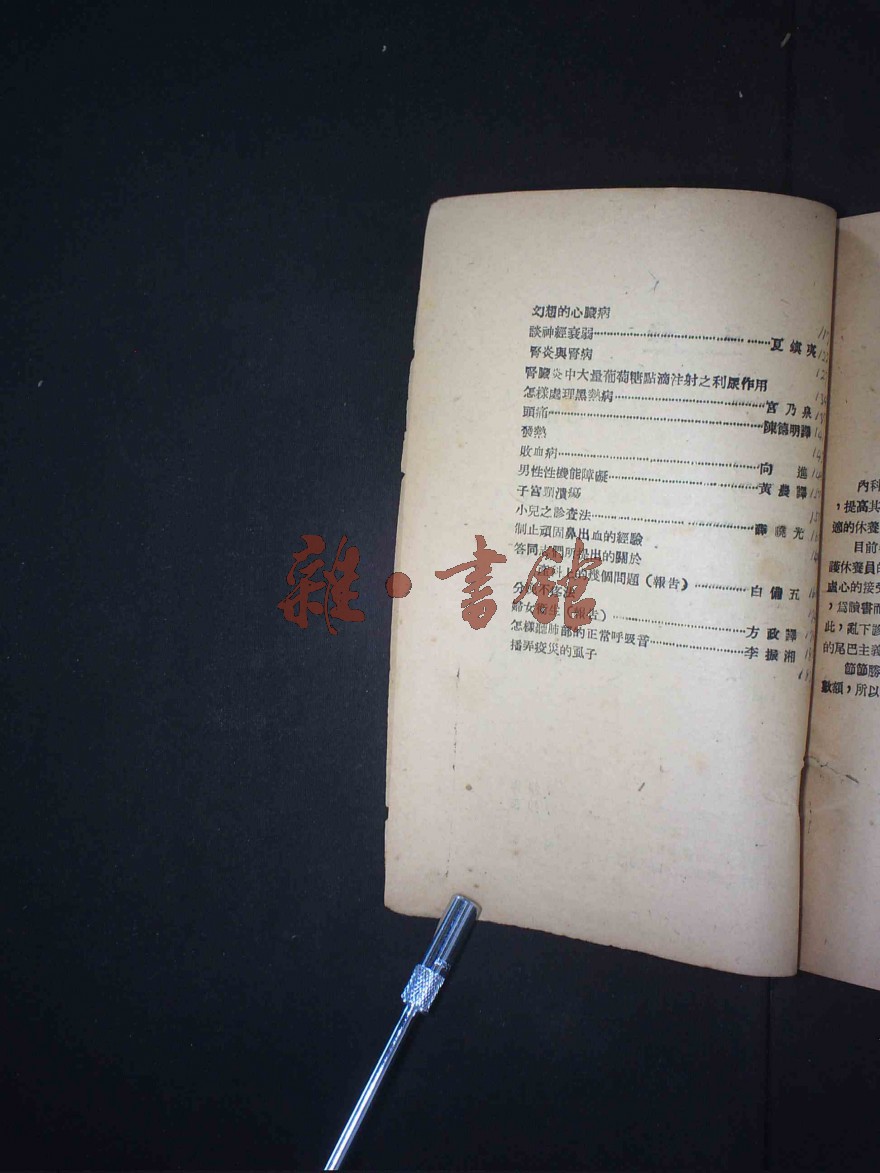 幻想的心臟病
談神經衰弱……………………夏鎮夷
腎炎與腎病
腎臟炎中大量葡萄糖點滴注射之利尿作用
怎樣處理黑熱病……………………宮乃泉
頭痛……………………陳饒明譯
發熱
敗血病……………………向進
男性性機能障礙……………………黃農譯
子宮頸潰瘍
小兒之診查法……………………薛曉光
制止頑固鼻出血的經驗
答同志們所提出的關於
產科上的幾個問題（報告）……………………白備五
分娩不痛法
婦女衛生（報告）……………………方政譯
怎樣聽肺部的正常呼吸音……………………李振湘
播弄疫災的虱子
雜·書館
內科
，提高其
適的休養
目前
護休養員的
虛心的接受
，為臉書而
此，亂下診
的尾巴主義
節節勝
數額，所以